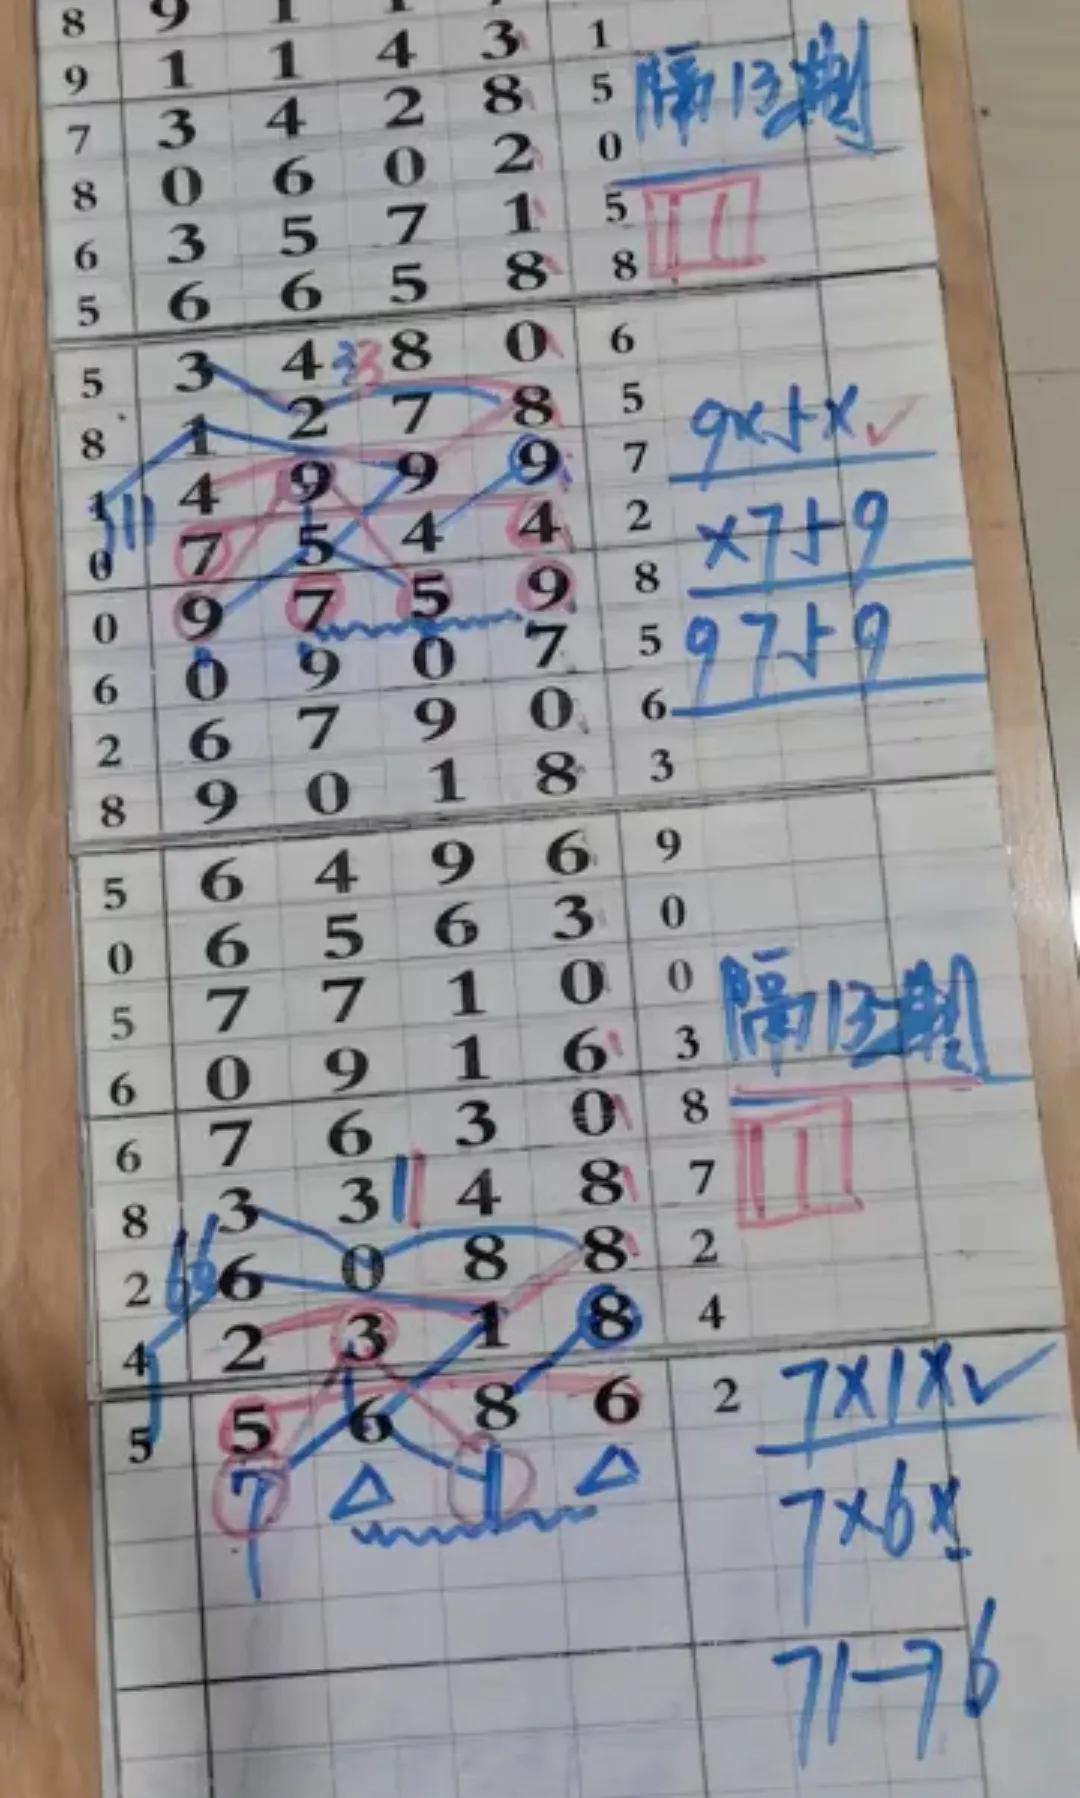 8 9 1 1
9 1 1 4 3 1
7 3 4 2 8 5
8 0 6 0 2 0
隔13期
6 3 5 7 1 5
5 6 6 5 8 8
5 3 4 33 8 0 6
8 1 2 7 8 5
9X5X✓
1 4 9 9 9 7
11
0 7 5 4 4 2
X759
0 9 7 5 9 8
9759
6 0 9 0 7 5
2 6 7 9 0 6
8 9 0 1 8 3
5 6 4 9 6 9
0 6 5 6 3 0
5 7 7 1 0 0
隔13期
6 0 9 1 6 3
6 7 6 3 0 8
8 3 3 11 4 8 7
2 66 6 0 8 8 2
4 2 3 1 8 4
5 5 6 8 6 2
7X1X✓
7 △ 1 △
7X6X
71-76